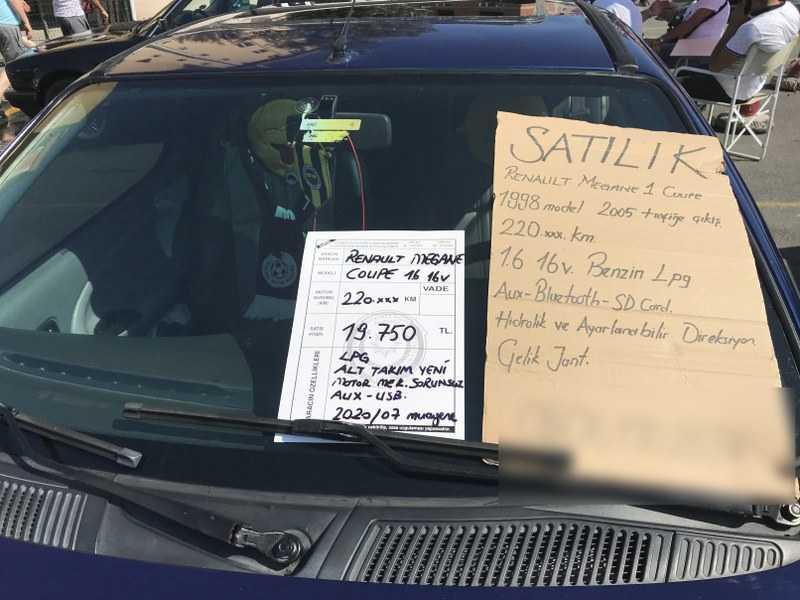 RENAULT MEGANE
MODELİ
COUPE 1.6 16v
VADE
220.xxx KM
19.750 TL.
ARACIN ÖZELLİKLERİ
LPG
ALT TAKIM YENİ
MOTOR MEK. SORUNSUZ
AUX-USB.
2020/07 muayene
SATILIK
RENAULT MEGANE 1 COUPE
1998 model 2005 trafiğe çıkış.
220.xxx. km.
1.6 16v. Benzin Lpg
Aux-Bluetooth-SD Card.
Hidrolik ve Ayarlanabilir Direksiyon
Çelik Jant.